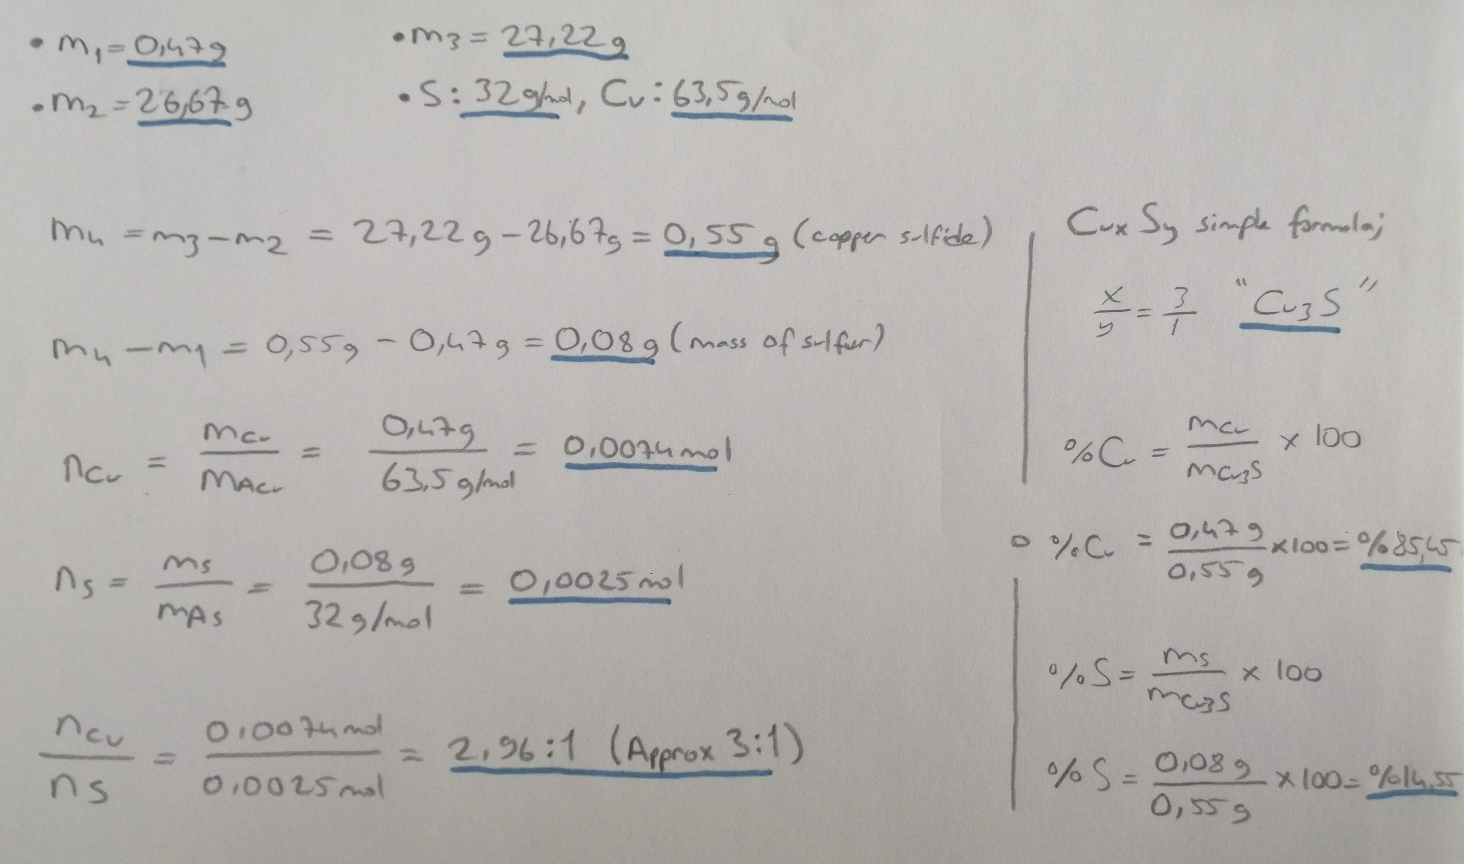 • m₁ = 0,47g
• m₂ = 26,67g
• m₃ = 27,22g
• S: 32g/mol, Cu: 63,5g/mol
m₄ = m₃ - m₂ = 27,22g - 26,67g = 0,55g (copper sulfide)
m₄ - m₁ = 0,55g - 0,47g = 0,08g (mass of sulfur)
nCu = mCu / MACu = 0,47g / 63,5g/mol = 0,0074mol
nS = mS / MAS = 0,08g / 32g/mol = 0,0025mol
nCu / nS = 0,0074mol / 0.0025mol = 2,96:1 (Approx 3:1)
CuxSy simple formula;
x/y = 3/1 "Cu₃S"
%Cu = mCu / mCu₃S × 100
%Cu = 0,47g / 0,55g × 100 = %85,45
%S = mS / mCu₃S × 100
%S = 0,08g / 0,55g × 100 = %14,55